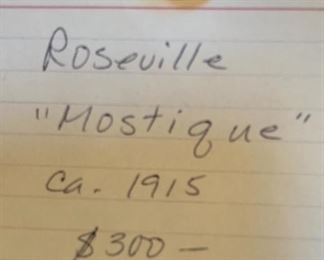 Roseville
"Mostique"
ca. 1915
$300 —